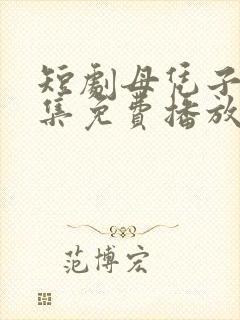 短劇母凭子
集免費播放
范博宏